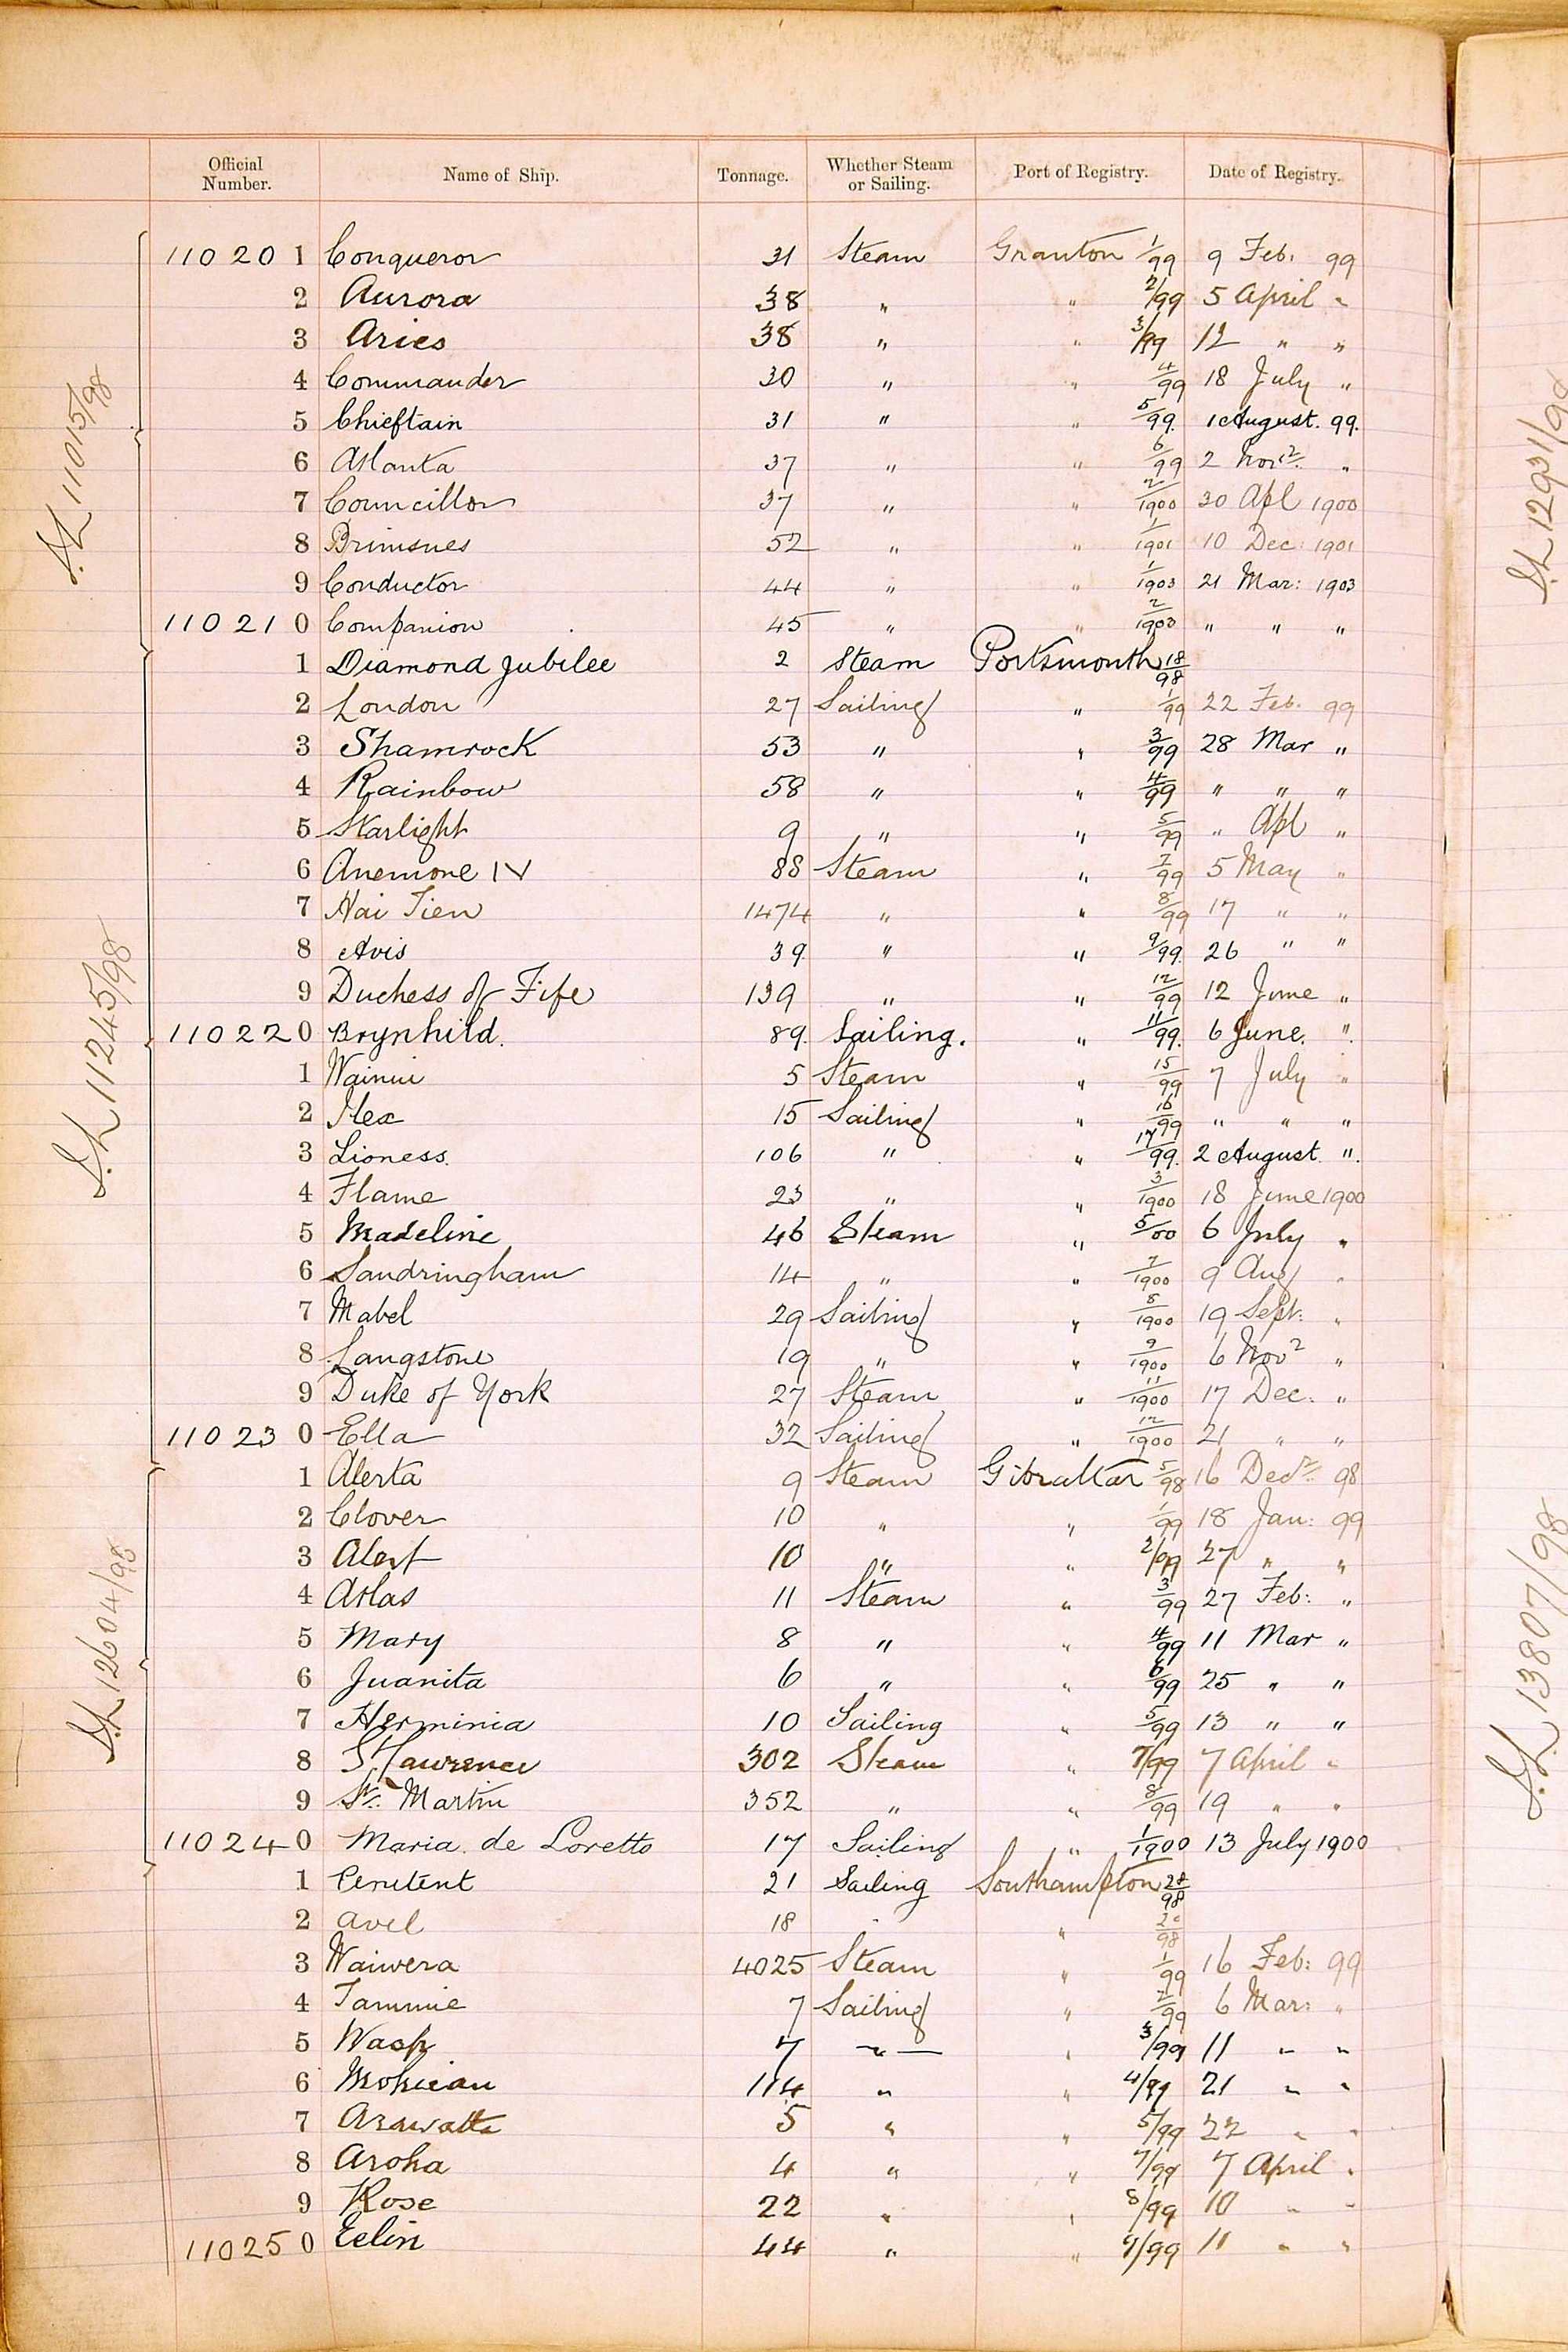 Official Number. Name of Ship. Tonnage. Whether Steam or Sailing. Port of Registry. Date of Registry.
11020 1 Conqueror 31 Steam Granton 1/99 9 Feb. 99
2 Aurora 38 " " 2/99 5 April "
3 Aries 38 " " 3/99 12 " "
4 Commander 30 " " 4/99 18 July "
5 Chieftain 31 " " 5/99. 1 August. 99.
6 Atlanta 37 " " 6/99 2 Novr. "
7 Councillor 37 " " 2/1900 30 Apl 1900
8 Brimsnes 52 " " 1/1901 10 Dec: 1901
9 Conductor 44 " " 1/1903 21 Mar: 1903
11021 0 Companion 45 " " 2/1903 " " "
1 Diamond Jubilee 2 Steam Portsmouth 18/98
2 London 27 Sailing " 1/99 22 Feb. 99
3 Shamrock 53 " " 3/99 28 Mar "
4 Rainbow 58 " " 4/99 " " "
5 Starlight 9 " " 5/99 " Apl "
6 Anemone IV 88 Steam " 7/99 5 May "
7 Hai Tien 1474 " " 8/99 17 " "
8 Avis 39 " " 9/99. 26 " "
9 Duchess of Fife 139 " " 12/99 12 June "
11022 0 Brynhild. 89. Sailing. " 11/99. 6 June. ".
1 Wainui 5 Steam " 15/99 7 July "
2 Ilex 15 Sailing " 16/99 " " "
3 Lioness. 106 " " 17/99. 2 August. ".
4 Flame 23 " " 3/1900 18 June 1900
5 Madeline 46 Steam " 5/00 6 July "
6 Sandringham 14 " " 7/1900 9 Aug "
7 Mabel 29 Sailing " 8/1900 19 Sept: "
8 Langstone 19 " " 9/1900 6 Novr "
9 Duke of York 27 Steam " 11/1900 17 Dec: "
11023 0 Ella 32 Sailing " 12/1900 21 " "
1 Alerta 9 Steam Gibraltar 5/98 16 Decr. 98
2 Clover 10 " " 1/99 18 Jan: 99
3 Alert 10 " " 2/99 27 " "
4 Atlas 11 Steam " 3/99 27 Feb: "
5 Mary 8 " " 4/99 11 Mar "
6 Juanita 6 " " 6/99 25 " "
7 Herminia 10 Sailing " 5/99 13 " "
8 St Lawrence 302 Steam " 7/99 7 April "
9 St. Martin 352 " " 8/99 19 " "
11024 0 Maria de Loretto 17 Sailing " 1/1900 13 July 1900
1 21 Sailing Southampton 98
2 Avel 18 " " 98
3 Waiwera 4025 Steam " 1/99 16 Feb: 99
4 Tammie 7 Sailing " 2/99 6 Mar: "
5 Wasp 7 " " 3/99 11 " "
6 Mohican 114 " " 4/99 21 " "
7 Arawatta 5 " " 5/99 22 " "
8 Aroha 4 " " 7/99 7 April "
9 Rose 22 " " 8/99 10 " "
11025 0 44 " " 9/99 11 " "
S.L 11015/98
S.L 11245/98
S.L 12604/98
S.L 12931/98
S.L. 13807/98